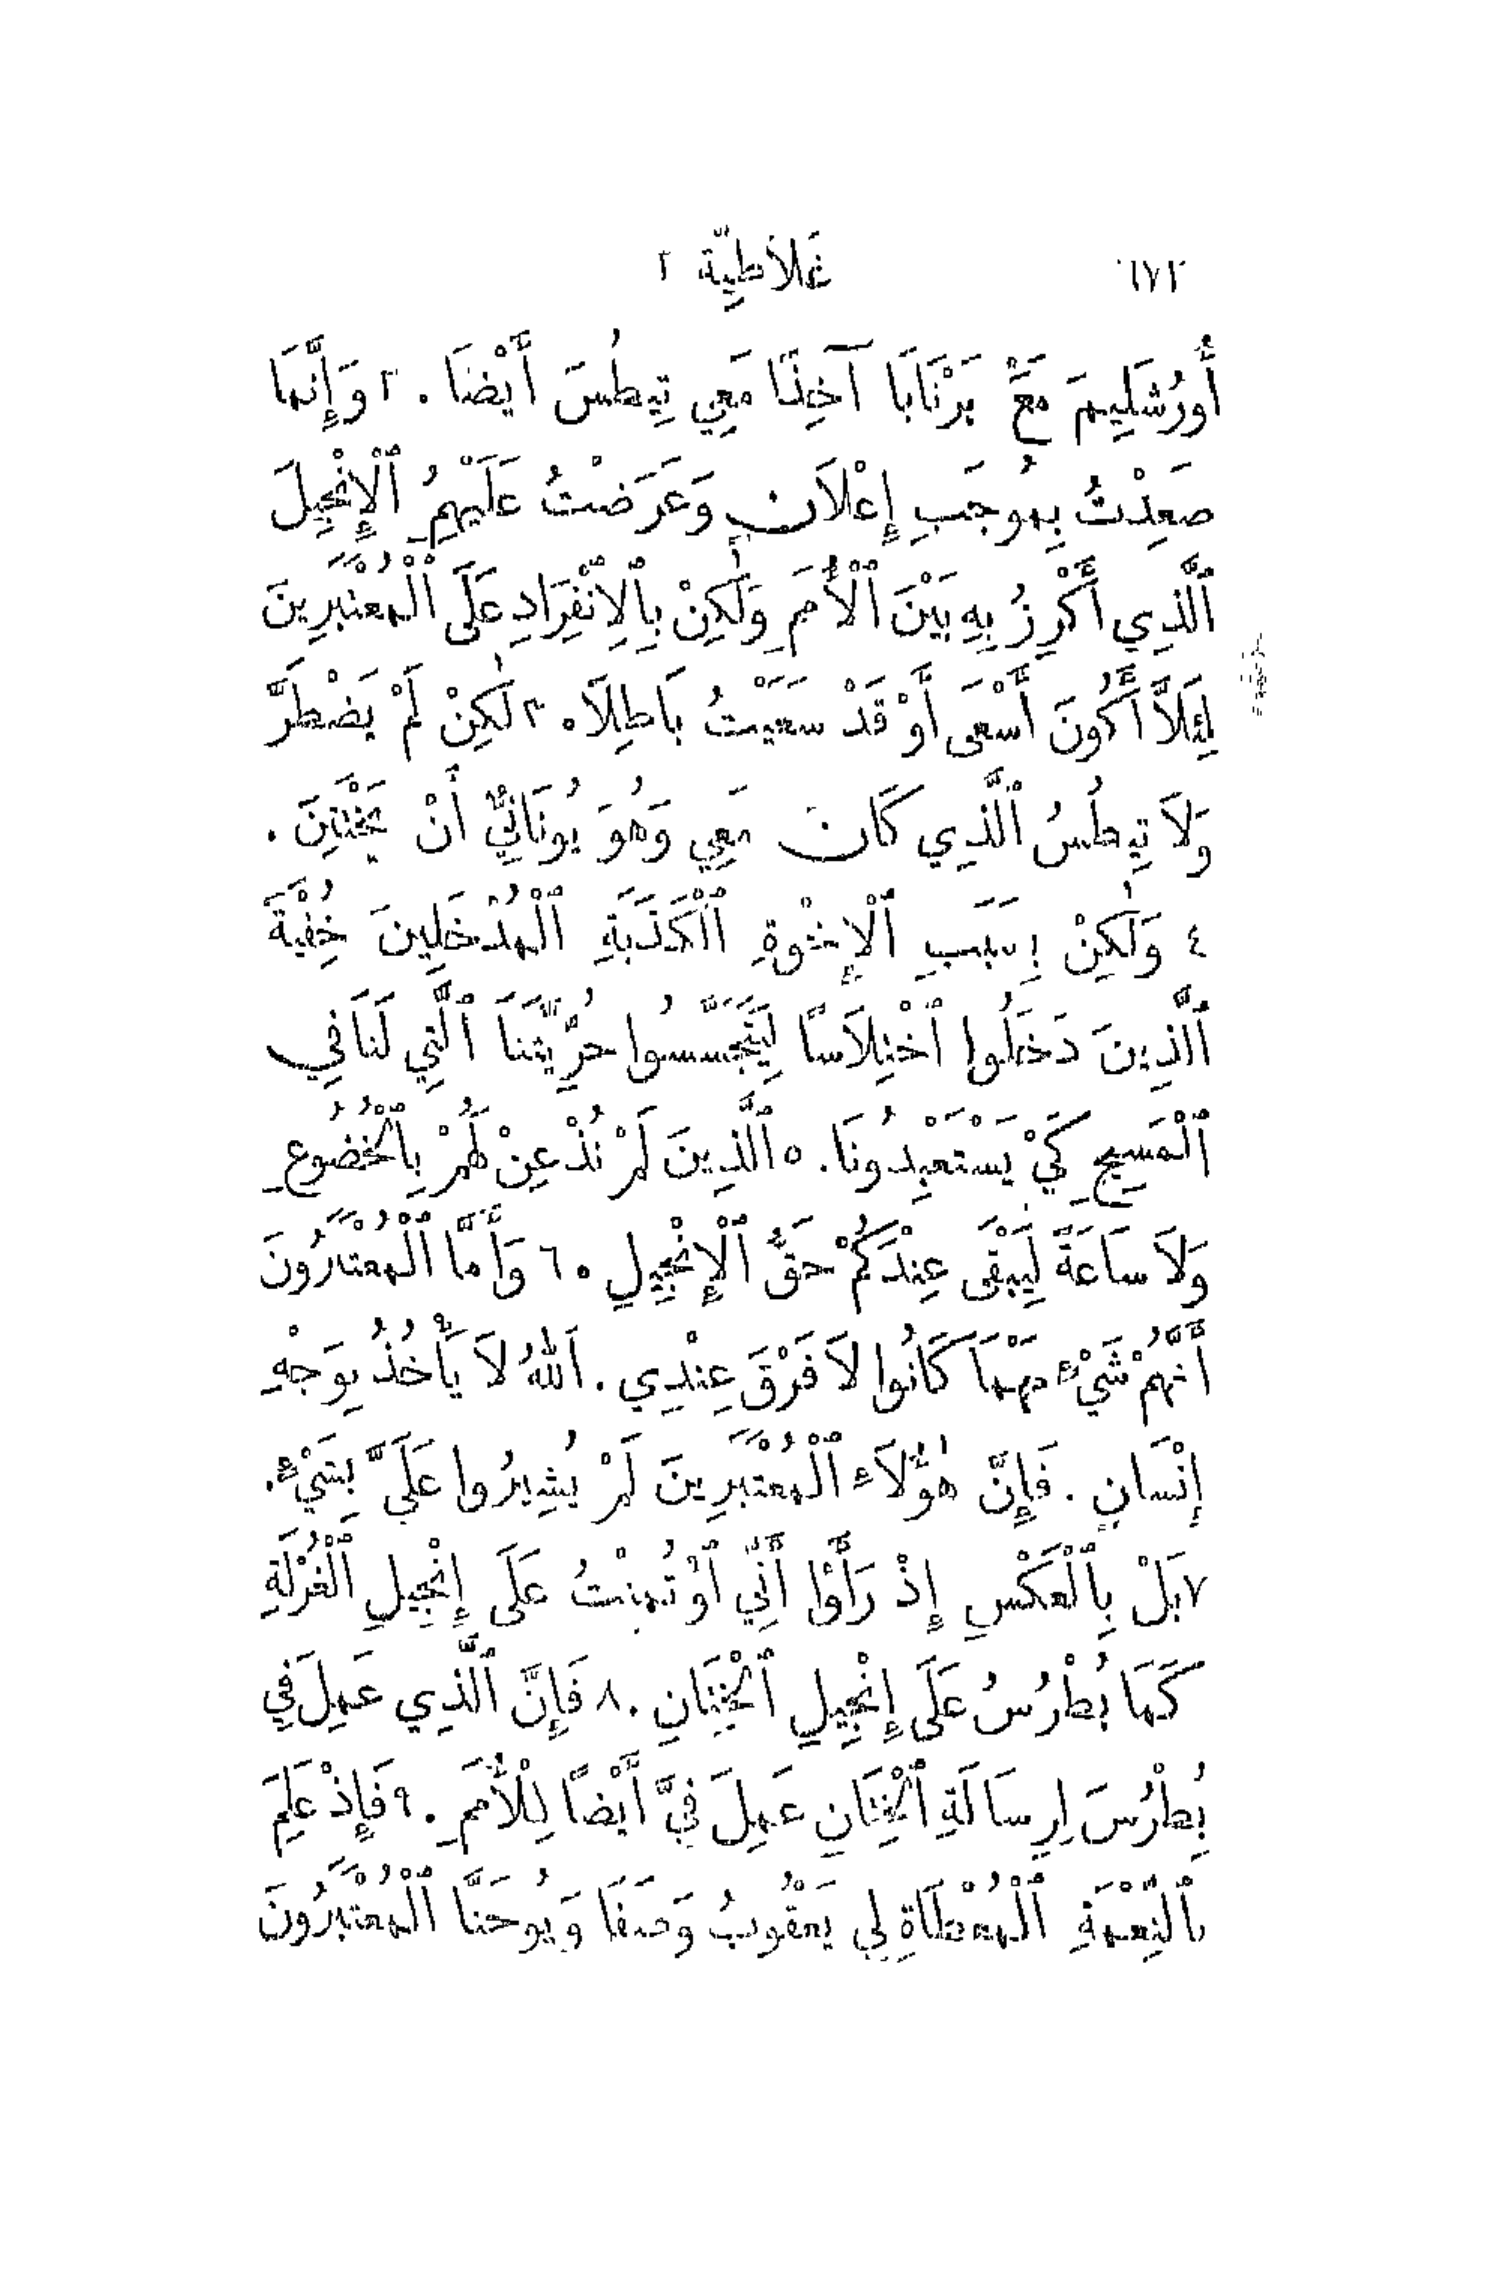 ٦٧٢ غَلَاطِيَّة ٢
أُورُشَلِيمَ مَعَ بَرْنَابَا آخِذًا مَعِي تِيطُسَ أَيْضًا. ٢ وَإِنَّمَا
صَعِدْتُ بِمُوجَبِ إِعْلَانٍ وَعَرَضْتُ عَلَيْهِمُ ٱلْإِنْجِيلَ
ٱلَّذِي أَكْرِزُ بِهِ بَيْنَ ٱلْأُمَمِ وَلٰكِنْ بِٱلِٱنْفِرَادِ عَلَى ٱلْمُعْتَبَرِينَ
لِئَلَّا أَكُونَ أَسْعَى أَوْ قَدْ سَعَيْتُ بَاطِلًا. ٣ لٰكِنْ لَمْ يَضْطَرَّ
وَلَا تِيطُسُ ٱلَّذِي كَانَ مَعِي وَهُوَ يُونَانِيٌّ أَنْ يَخْتَتِنَ.
٤ وَلٰكِنْ بِسَبَبِ ٱلْإِخْوَةِ ٱلْكَذَبَةِ ٱلْمُدْخَلِينَ خُفْيَةً
ٱلَّذِينَ دَخَلُوا ٱخْتِلَاسًا لِيَتَجَسَّسُوا حُرِّيَّتَنَا ٱلَّتِي لَنَا فِي
ٱلْمَسِيحِ كَيْ يَسْتَعْبِدُونَا. ٥ ٱلَّذِينَ لَمْ نُذْعِنْ لَهُمْ بِٱلْخُضُوعِ
وَلَا سَاعَةً لِيَبْقَى عِنْدَكُمْ حَقُّ ٱلْإِنْجِيلِ. ٦ وَأَمَّا ٱلْمُعْتَبَرُونَ
أَنَّهُمْ شَيْءٌ مَهْمَا كَانُوا لَا فَرْقَ عِنْدِي. اَللهُ لَا يَأْخُذُ بِوَجْهِ
إِنْسَانٍ. فَإِنَّ هٰؤُلَاءِ ٱلْمُعْتَبَرِينَ لَمْ يُشِيرُوا عَلَيَّ بِشَيْءٍ.
٧ بَلْ بِٱلْعَكْسِ إِذْ رَأَوْا أَنِّي ٱوْتُمِنْتُ عَلَى إِنْجِيلِ ٱلْغُرْلَةِ
كَمَا بُطْرُسُ عَلَى إِنْجِيلِ ٱلْخِتَانِ. ٨ فَإِنَّ ٱلَّذِي عَمِلَ فِي
بُطْرُسَ لِرِسَالَةِ ٱلْخِتَانِ عَمِلَ فِيَّ أَيْضًا لِلْأُمَمِ. ٩ فَإِذْ عَلِمَ
بِٱلنِّعْمَةِ ٱلْمُعْطَاةِ لِي يَعْقُوبُ وَصَفَا وَيُوحَنَّا ٱلْمُعْتَبَرُونَ